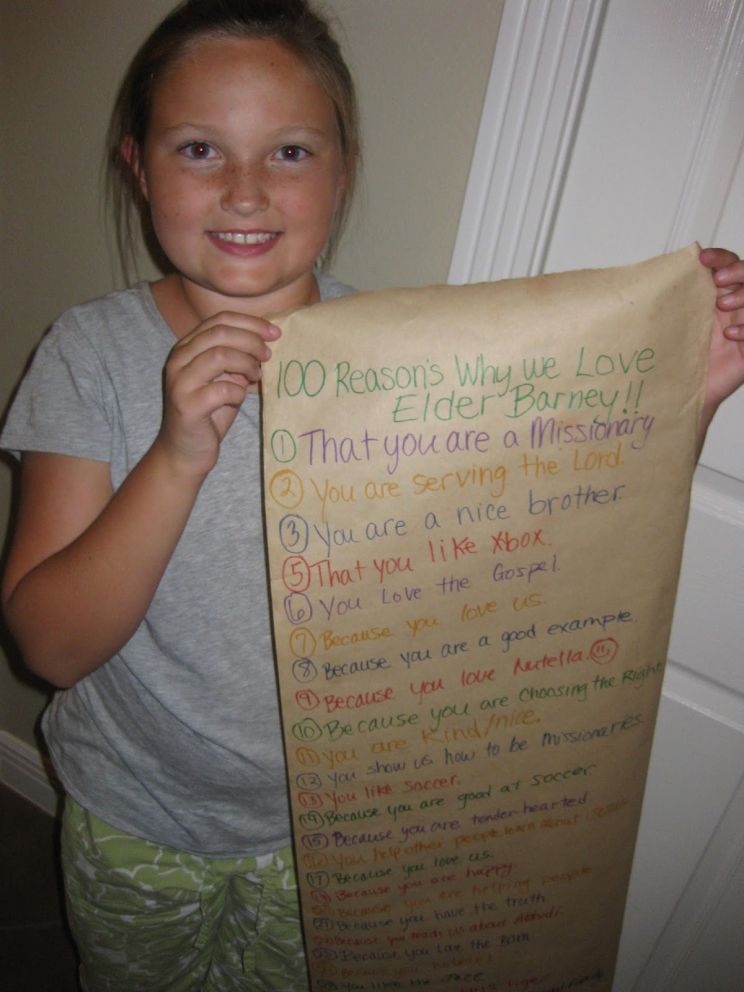 100 Reason's Why we Love
Elder Barney!!
① That you are a Missionary
② You are serving the Lord.
③ You are a nice brother.
⑤ That you like Xbox.
⑥ You Love the Gospel.
⑦ Because you love us.
⑧ Because you are a good example.
⑨ Because you love Nutella.
⑩ Because you are Choosing the Right
⑪ You are Kind/nice.
⑫ You show us how to be Missionaries.
⑬ You like Soccer.
⑭ Because you are good at Soccer
⑮ Because you are tender hearted
⑯ You help other people learn about Jesus
⑰ Because you love us.
⑱ Because you are happy
Because you are helping people
Because you have the truth
Because you teach us about
Because you love the
Because you
You like the